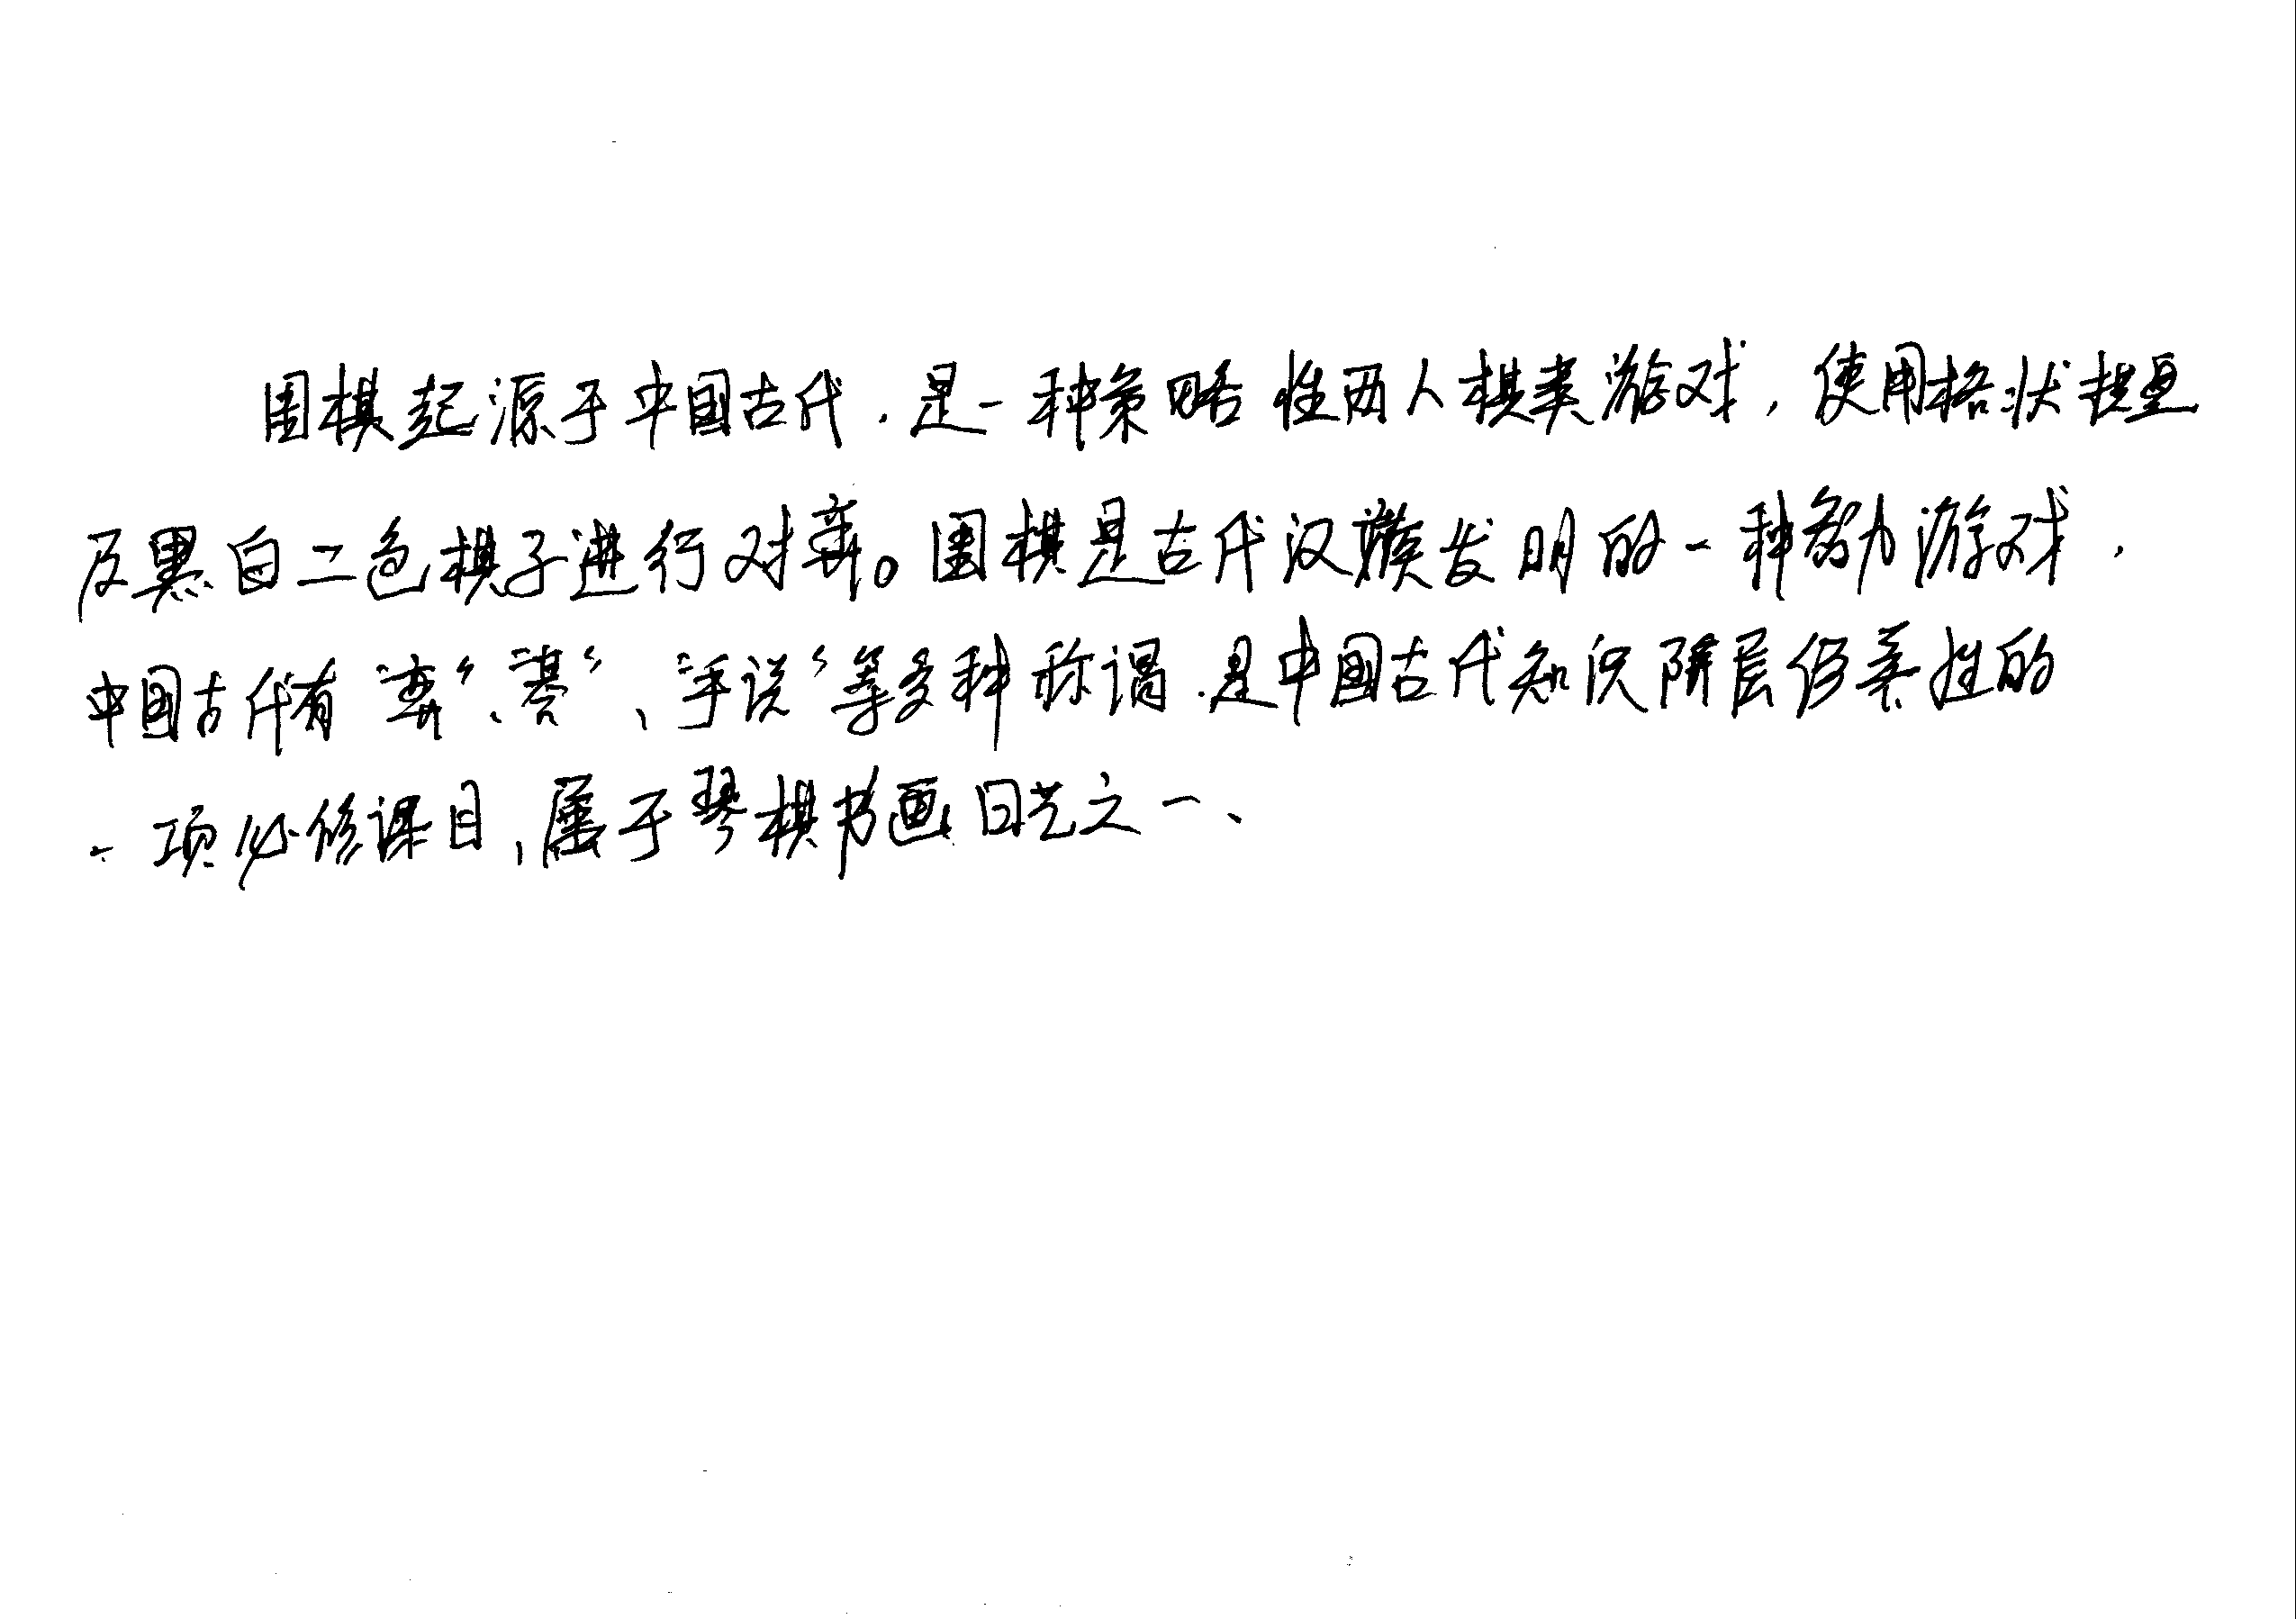 围棋起源于中国古代，是一种策略性两人棋类游戏，使用格状棋盘
及黑白二色棋子进行对弈。围棋是古代汉族发明的一种智力游戏，
中国古代有“弈”、“碁”、“手说”等多种称谓，是中国古代知识阶层修养性的
一项必修课目，属于琴棋书画四艺之一、